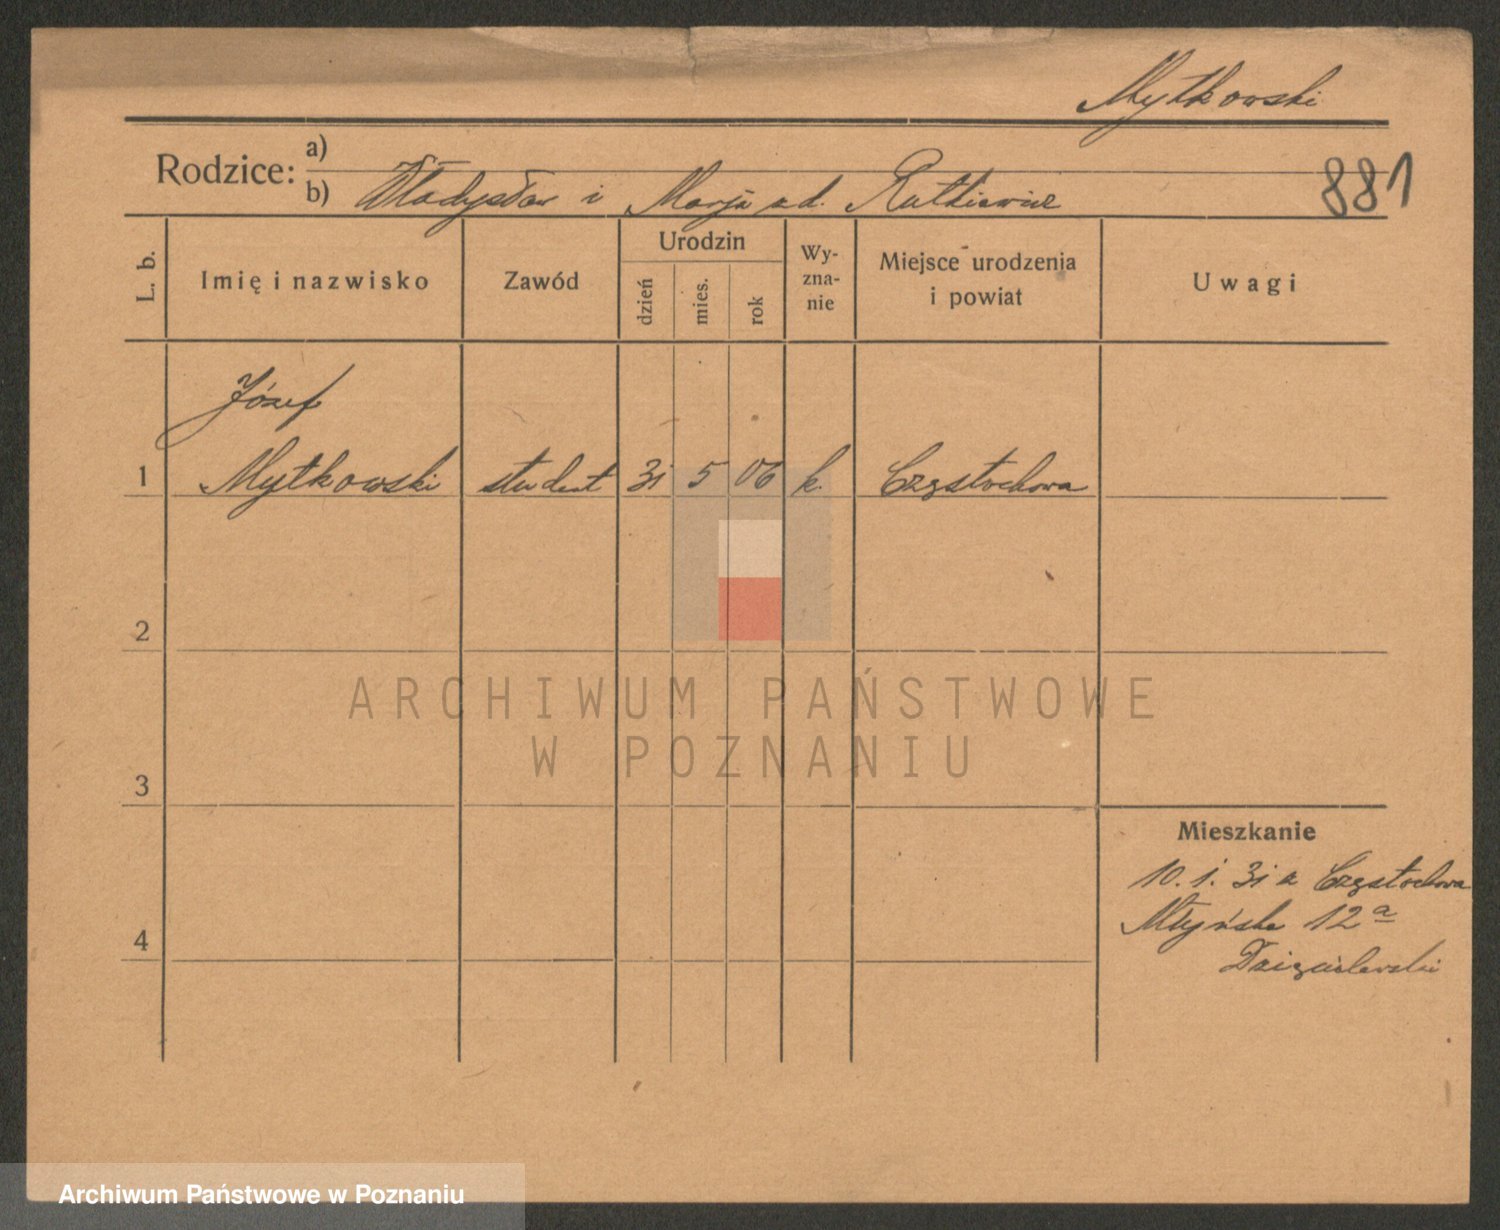 Mytkowski
Rodzice: a)
b) Władysław i Marja z d. Rutkiewicz
881
L. b.
Imię i nazwisko
Zawód
Urodzin
dzień
mies.
rok
Wy-
zna-
nie
Miejsce urodzenia
i powiat
Uwagi
Józef
1 Mytkowski student 31 5 06 k. Częstochowa
2
ARCHIWUM PAŃSTWOWE
W POZNANIU
3
Mieszkanie
10. 1. 31 z Częstochowa
Młyńska 12a
4
Archiwum Państwowe w Poznaniu